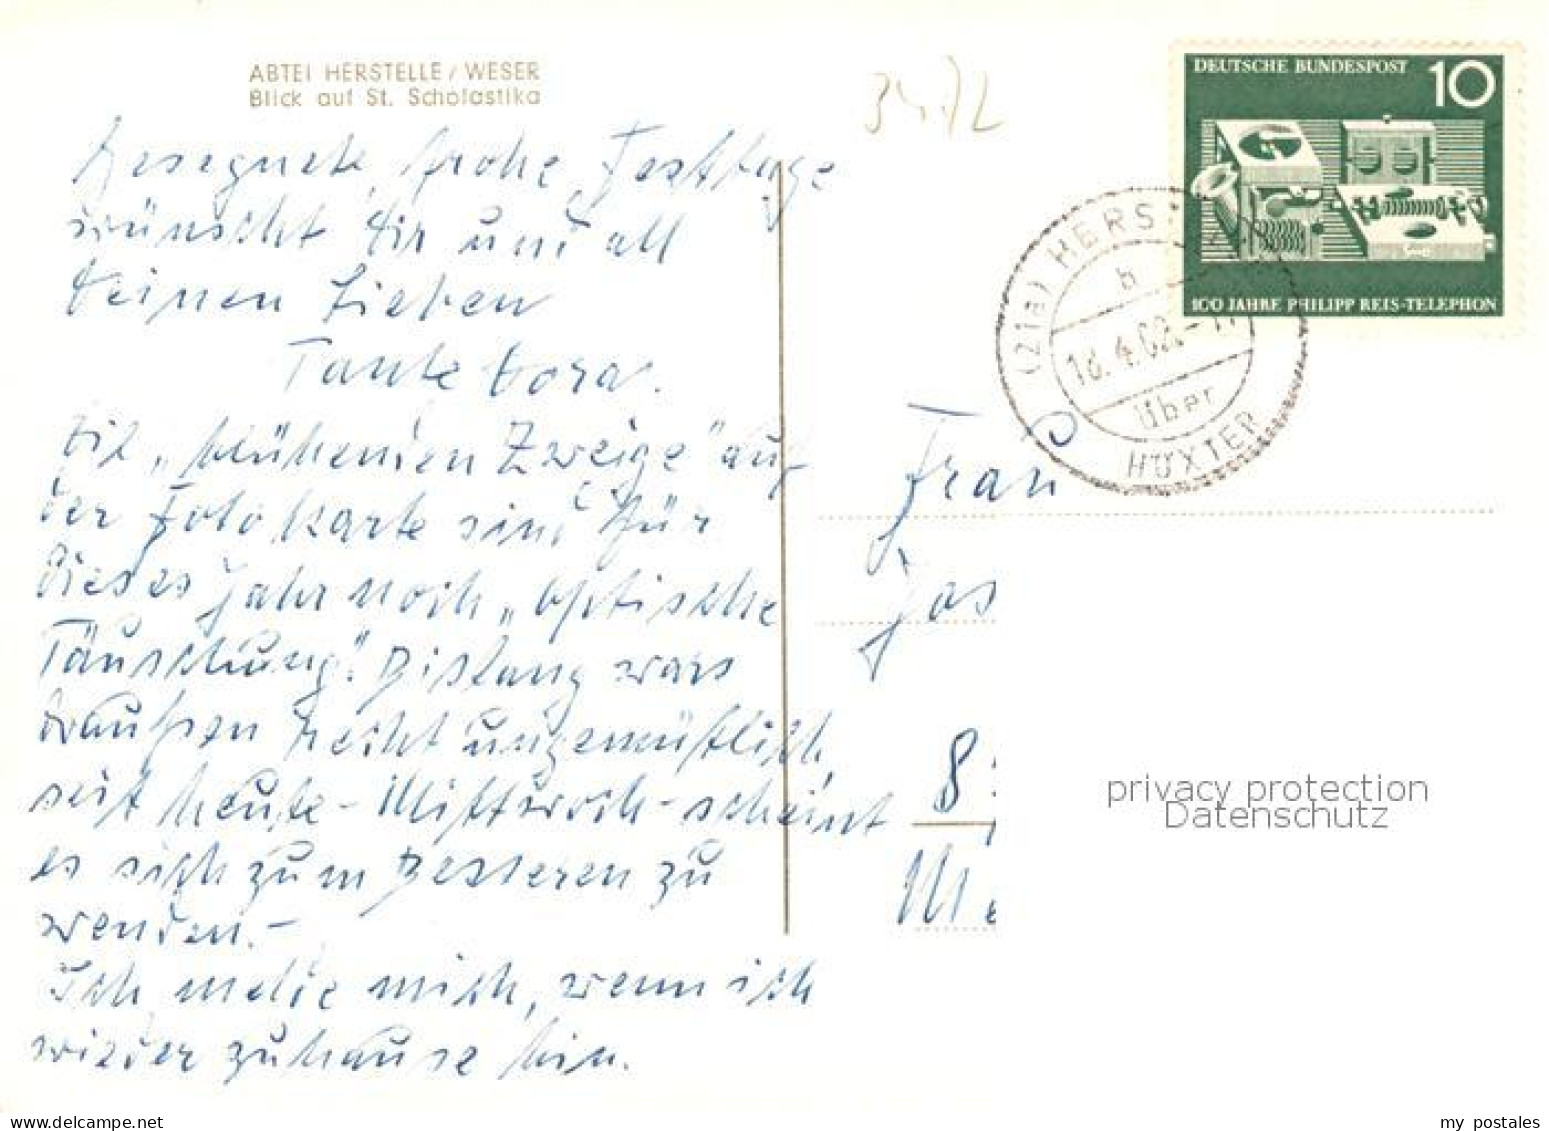 ABTEI HERSTELLE / WESER
Blick auf St. Scholastika
Gesegnete, frohe Festtage
wünscht Dir und all
Deinen Lieben
Tante Dora.
Die „blühenden Zweige" auf
der Fotokarte sind für
dieses Jahr noch „optische
Täuschung". Bislang wars
draußen recht ungemütlich,
seit heute - Mittwoch - scheint
es sich zum Besseren zu
wenden.-
Ich melde mich, wenn ich
wieder zuhause bin.
DEUTSCHE BUNDESPOST 10
100 JAHRE PHILIPP REIS-TELEPHON
(21a) HERS
b
18.4.62
über
HÖXTER
Frau
8
privacy protection
Datenschutz
my postales